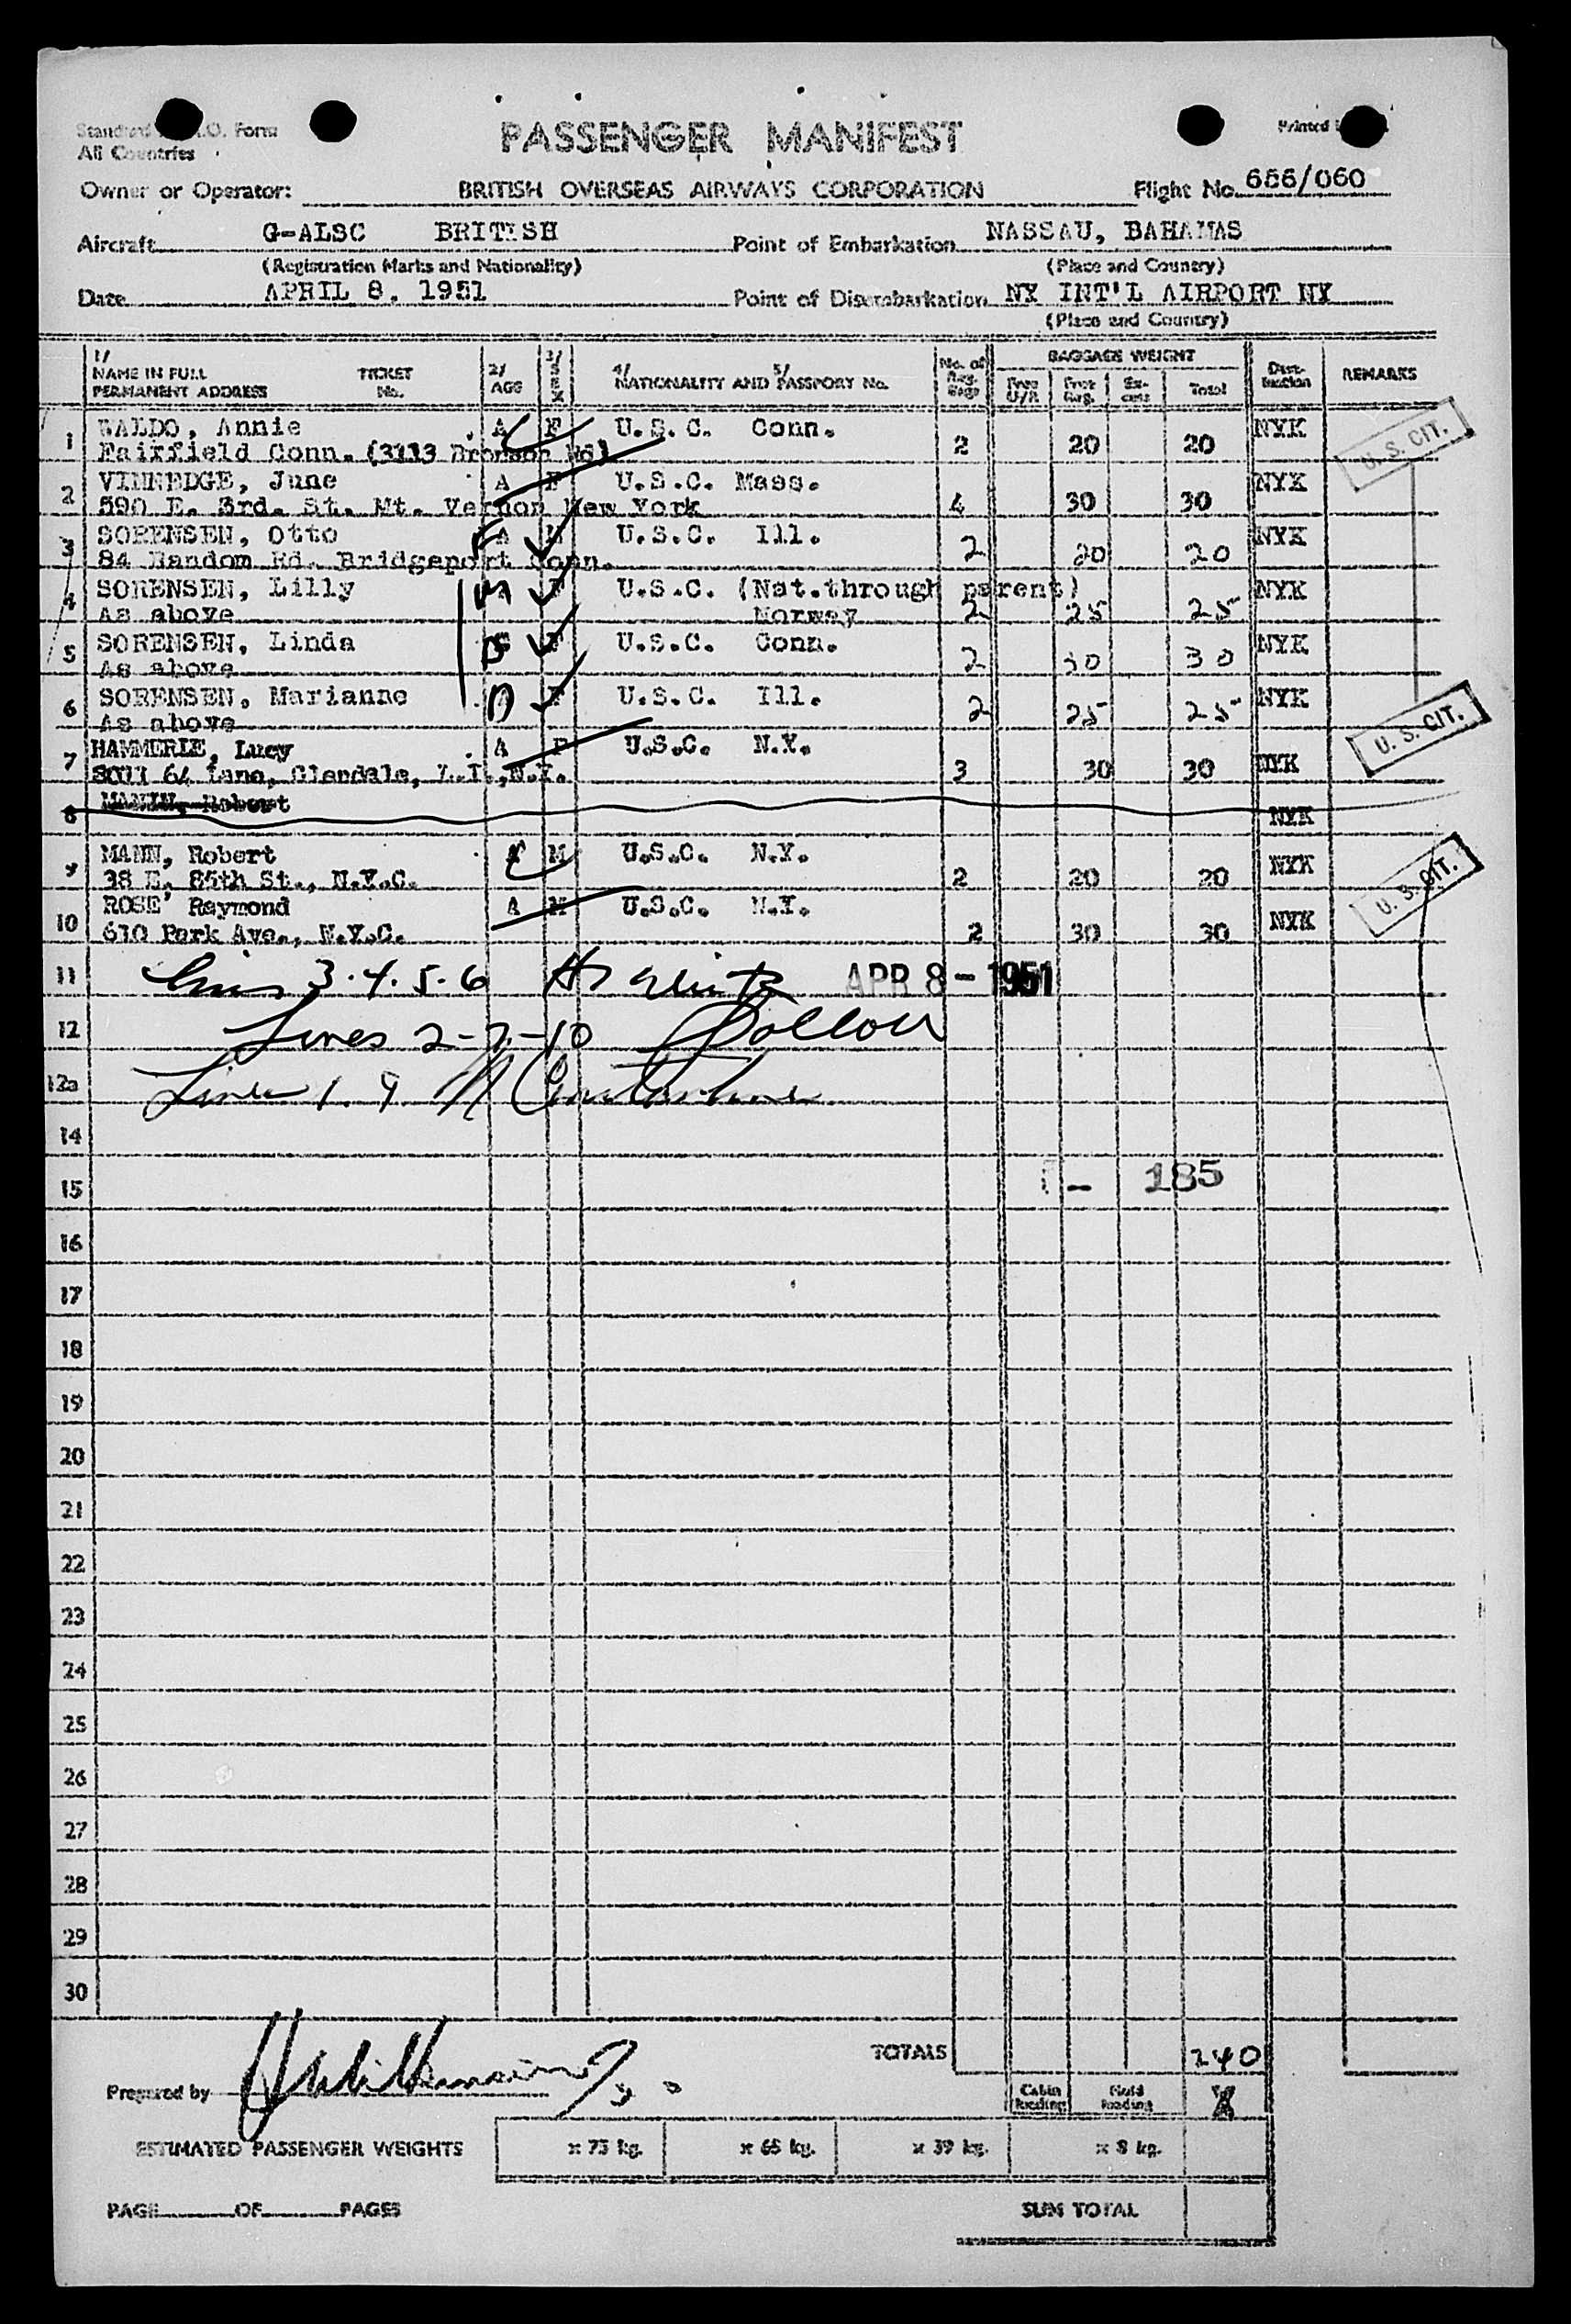 Standard I.C.A.O. Form
All Countries
PASSENGER MANIFEST
Printed
Owner or Operator: BRITISH OVERSEAS AIRWAYS CORPORATION Flight No. 666/060
Aircraft G-ALSC BRITISH Point of Embarkation NASSAU, BAHAMAS
(Registration Marks and Nationality) (Place and Country)
Date APRIL 8. 1951 Point of Disembarkation NY INT'L AIRPORT NY
(Place and Country)
1/ NAME IN FULL PERMANENT ADDRESS TICKET No. 2/ AGE 3/ SEX 4/ NATIONALITY AND 5/ PASSPORT No. No. of Reg. Bags BAGGAGE WEIGHT Free U/R Free Reg. Ex-cess Total Dest-ination REMARKS
1 WALDO, Annie A F U.S.C. Conn. 2 20 20 NYK U. S. CIT.
Fairfield Conn. (3113 Bronson Rd)
2 VINNEDGE, June A F U.S.C. Mass. 4 30 30 NYK
590 E. 3rd. St. Mt. Vernon New York
3 SORENSEN, Otto A M U.S.C. Ill. 2 20 20 NYK
84 Random Rd. Bridgeport Conn.
4 SORENSEN, Lilly M F U.S.C. (Nat.through parent) 2 25 25 NYK
As above Norway
5 SORENSEN, Linda D F U.S.C. Conn. 2 30 30 NYK
As above
6 SORENSEN, Marianne D F U.S.C. Ill. 2 25 25 NYK
As above
U. S. CIT.
7 HAMMERLE, Lucy A F U.S.C. N.Y. 3 30 30 NYK
8011 64 Lane, Glendale, L.I.,N.Y.
8 Robert NYK
9 MANN, Robert A M U.S.C. N.Y. 2 20 20 NYK U. S. CIT.
38 E. 85th St., N.Y.C.
10 ROSE' Raymond A M U.S.C. N.Y. 2 30 30 NYK
610 Park Ave., N.Y.C.
11 Lines 3.4.5.6 APR 8 - 1951
12 Lines 2-7-10
12a Lines 1. 9
14
15 - 185
16
17
18
19
20
21
22
23
24
25
26
27
28
29
30
TOTALS 240
Prepared by Cabin loading Hold loading
ESTIMATED PASSENGER WEIGHTS x 73 kg. x 65 kg. x 39 kg. x 8 kg.
PAGE OF PAGES SUM TOTAL